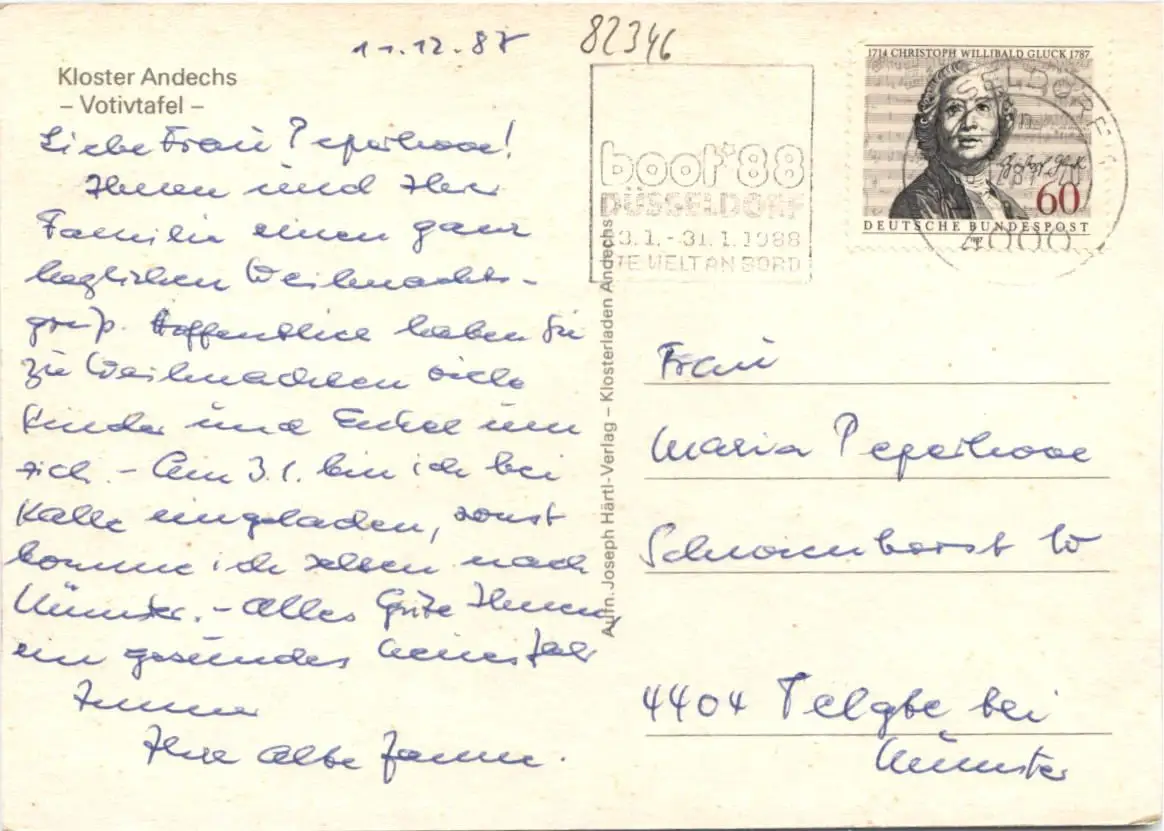 11.12.87
82346
Kloster Andechs
– Votivtafel –
Liebe Frau Peperhove!
Ihnen und Ihrer
Familie einen ganz
herzlichen Weihnachts-
gruß. Hoffentlich haben Sie
zu Weihnachten viele
Kinder und Enkel um
sich. – Am 3.1. bin ich bei
Kalle eingeladen, sonst
komme ich selten nach
Münster. – Alles Gute Ihnen,
ein gesundes Neues Jahr
Immer
Ihre alte
Aufn. Joseph Härtl-Verlag – Klosterladen Andechs
boot'88
DÜSSELDORF
3.1. - 31.1.1988
DIE WELT AN BORD
1714 CHRISTOPH WILLIBALD GLUCK 1787
60
DEUTSCHE BUNDESPOST
DÜSSELDORF
4000
Frau
Maria Peperhove
4404 Telgte bei
Münster